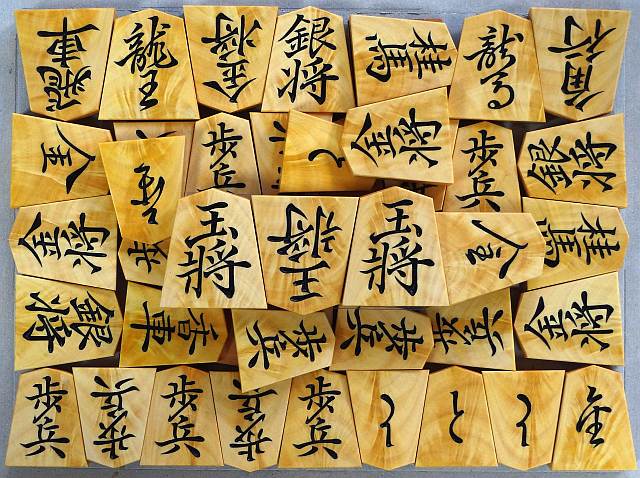 飛車 龍王 金将 銀将 桂馬 龍馬 角行
全 歩兵 と 金将 歩兵 銀将
金将 杏 王将 王将 王将 全 桂馬
銀将 香車 歩兵 歩兵 歩兵 金将
歩兵 歩兵 歩兵 歩兵 歩兵 と と と 全